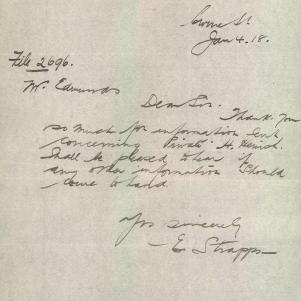 St.
Jan 4. 18.
File 2696.
Mr. Edmunds
Dear Sir.
Thank you
so much for information sent
concerning Private H.
Shall be pleased to hear if
any other information should
come to hand.
Yrs sincerely
E Strapps